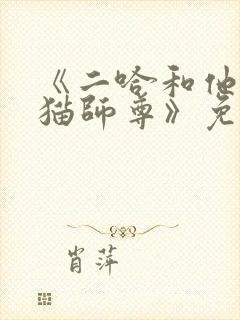 《二哈和他
猫師尊》免
肖萍